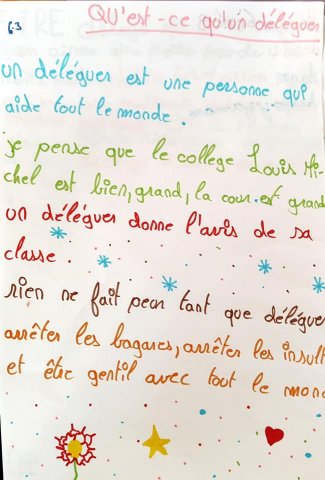 6.3
QU'est-ce qu'un déléguer
un déléguer est une personne qui
aide tout le monde.
je pense que le collège Louis Mi-
chel est bien, grand, la cour est grand
un déléguer donne l'avis de sa
classe.
rien ne fait peur tant que déléguer
arrêter les bagares, arrêter les insult
et être gentil avec tout le mond